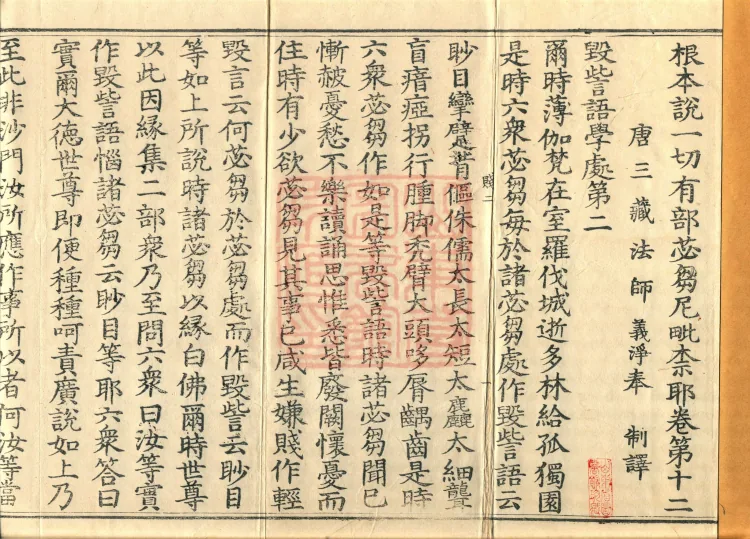 根本說一切有部苾芻尼毗柰耶卷第十二
唐三藏法師義淨奉 制譯
毀訾語學處第二
爾時薄伽梵在室羅伐城逝多林給孤獨園
是時六衆苾芻每於諸苾芻處作毀訾語云
賤二
眇目攣躄背傴侏儒太長太短太麤太細聾
盲瘖瘂拐行腫脚禿臂大頭哆脣齲齒是時
六衆苾芻作如是等毀訾語時諸苾芻聞已
慚赧憂愁不樂讀誦思惟悉皆廢闕懷憂而
住時有少欲苾芻見其事已咸生嫌賤作輕
毀言云何苾芻於苾芻處而作毀訾云眇目
等如上所說時諸苾芻以緣白佛爾時世尊
以此因緣集二部衆乃至問六衆曰汝等實
作毀訾語惱諸苾芻云眇目等耶六衆答曰
實爾大德世尊即便種種呵責廣說如上乃
至此非沙門汝所應作事所以者何汝等當